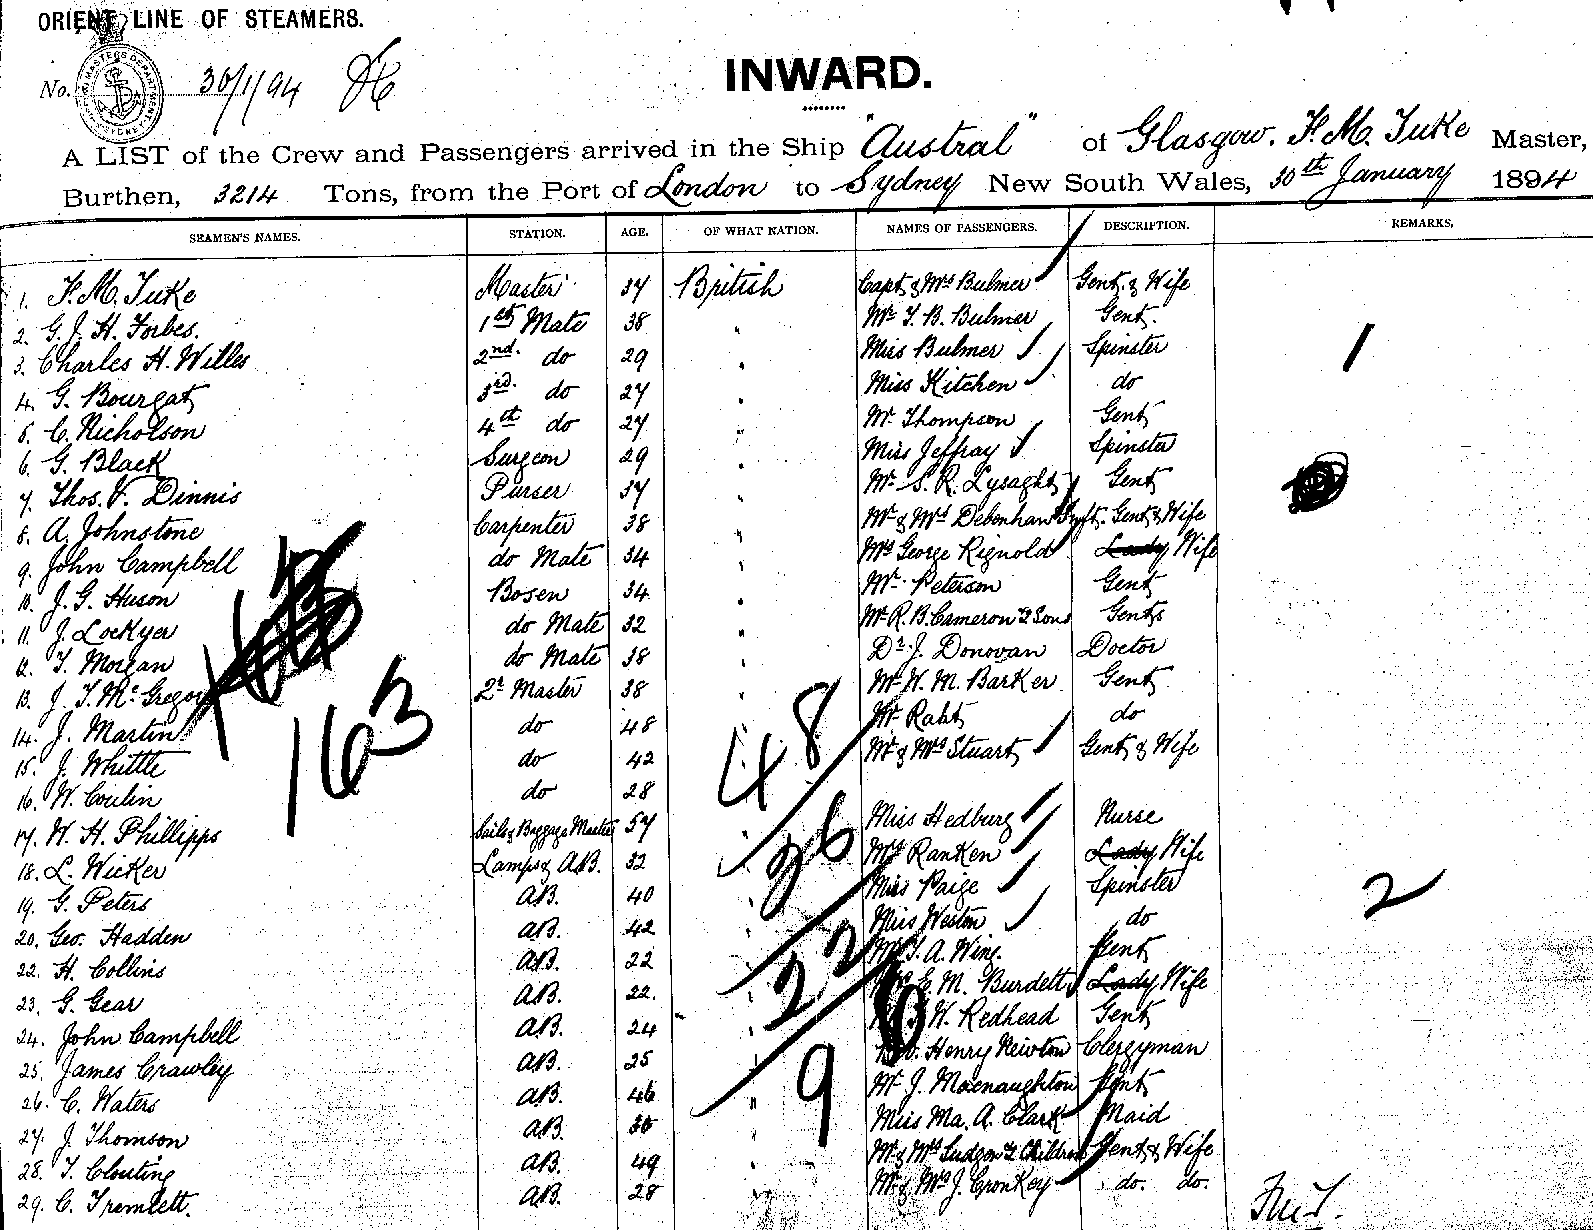 ORIENT LINE OF STEAMERS.
No. 30/1/94
MASTERS DEPARTMENT SYDNEY
INWARD.
A LIST of the Crew and Passengers arrived in the Ship "Austral" of Glasgow. F. M. Tuke Master,
Burthen, 3214 Tons, from the Port of London to Sydney New South Wales, 30th January 1894
SEAMEN'S NAMES. STATION. AGE. OF WHAT NATION. NAMES OF PASSENGERS. DESCRIPTION. REMARKS.
1. F. M. Tuke Master 37 British Capt. & Mrs Bulmer Gent. & Wife
2. G. J. H. Forbes. 1st Mate 38 " Mr T. B. Bulmer Gent.
3. Charles H. Willes 2nd. do 29 " Miss Bulmer Spinster 1
4. G. Bourgat 3rd. do 27 " Miss Kitchen do
5. C. Nicholson 4th do 27 " Mr. Thompson Gent
6. G. Black Surgeon 29 " Miss Jeffray Spinster
7. Thos. V. Dinnis Purser 37 " Mr S. R. Lysaght Gent
8. A. Johnstone Carpenter 38 " Mr & Mrs Debenham Gent & Wife
9. John Campbell do Mate 34 " Mrs George Rignold Lady Wife
10. J. G. Huson Bosen 34 " Mr. Peterson Gent
11. J. Lockyer do Mate 32 " Mr R. B. Cameron & Sons Gents
12. T. Morgan do Mate 38 " Dr. J. Donovan Doctor
13. J. T. McGregor 2r Master 38 " Mr W. M. Barker Gent
14. J. Martin do 48 Mr Raht do
15. J. Whittle do 42 Mr & Mrs Stuart Gent & Wife
16. W. Coulin do 28
163 48
17. W. H. Phillipps Sails & Baggage Master 57 Miss Hedburg Nurse
18. L. Wicker Lamps & A.B. 32 36 Mrs Ranken Lady Wife
19. G. Peters A.B. 40 Miss Paige Spinster 2
20. Geo. Hadden A.B. 42 Miss Weston do
22. H. Collins A.B. 22 22 A. Wing. Gent
23. G. Gear A.B. 22. E. M. Burdett Lady Wife
24. John Campbell A.B. 24 W. Redhead Gent
25. James Crawley A.B. 25 Henry Newton Clergyman
26. C. Waters A.B. 46 9 Mr J. Macnaughton Gent
27. J. Thomson A.B. Miss Ma. A. Clark Maid
28. T. Clouting A.B. 49 Mr & Mrs Children Gent & Wife
29. C. Tremlett. A.B. 28 Mr & Mrs J. Cronkey do. do.